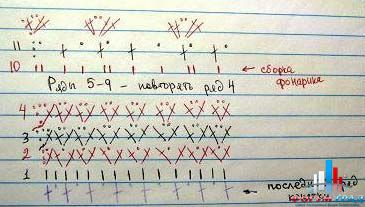 11
10 ← сборка фонарика
Ряды 5-9 - повторять ряд 4
4
3
2
1
← последний ряд